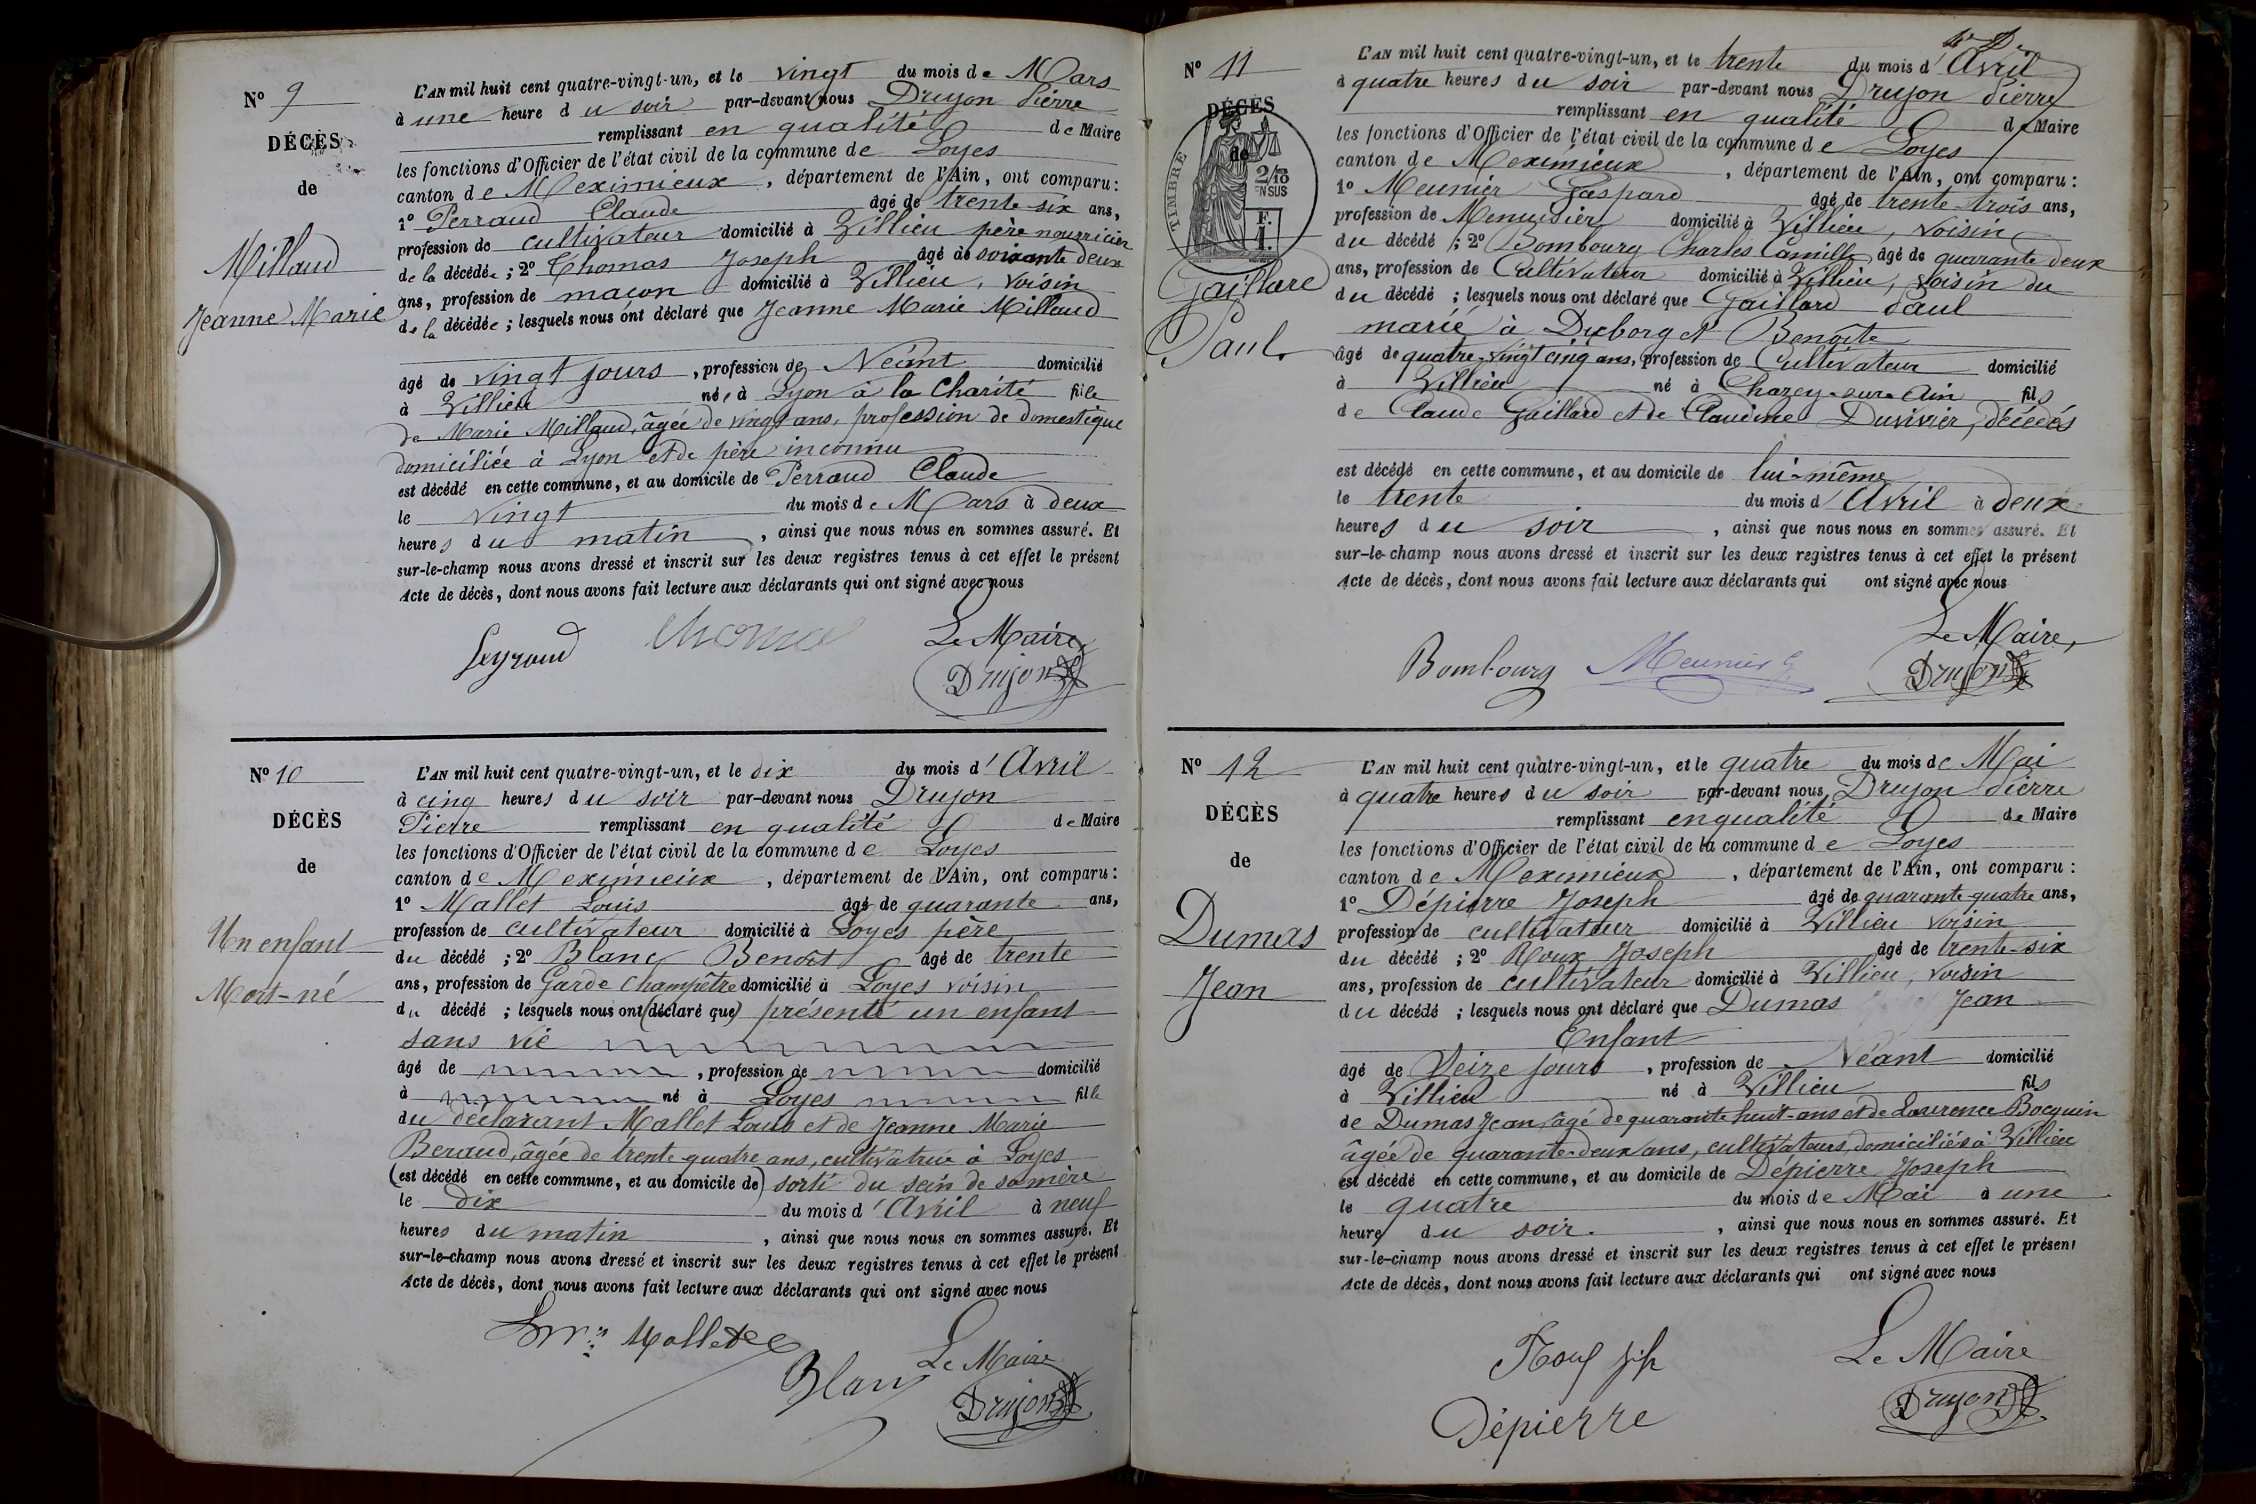 N° 9
DÉCÈS
de
Millaud
Jeanne Marie
L'AN mil huit cent quatre-vingt-un, et le vingt du mois de Mars
à une heure du soir par-devant nous Drujon Pierre
remplissant en qualité de Maire
les fonctions d'Officier de l'état civil de la commune de Loyes
canton de Meximieux, département de l'Ain, ont comparu:
1° Perraud Claude âgé de trente-six ans,
profession de cultivateur domicilié à Villieu père nourricier
de la décédée; 2° Thomas Joseph âgé de soixante deux
ans, profession de maçon domicilié à Villieu, voisin
de la décédée; lesquels nous ont déclaré que Jeanne Marie Millaud
âgé de vingt jours, profession de Néant domicilié
à Villieu née à Lyon à la Charité fille
de Marie Millaud, âgée de vingt ans, profession de domestique
domiciliée à Lyon et de père inconnu
est décédé en cette commune, et au domicile de Perraud Claude
le vingt du mois de Mars à deux
heures du matin, ainsi que nous nous en sommes assuré. Et
sur-le-champ nous avons dressé et inscrit sur les deux registres tenus à cet effet le présent
Acte de décès, dont nous avons fait lecture aux déclarants qui ont signé avec nous
Thomas Le Maire,
Drujon
N° 10
DÉCÈS
de
Un enfant
Mort-né
L'AN mil huit cent quatre-vingt-un, et le dix du mois d'Avril
à cinq heures du soir par-devant nous Drujon
Pierre remplissant en qualité de Maire
les fonctions d'Officier de l'état civil de la commune de Loyes
canton de Meximieux, département de l'Ain, ont comparu:
1° Mallet Louis âgé de quarante ans,
profession de cultivateur domicilié à Loyes père
du décédé; 2° Blanc Benoît âgé de trente
ans, profession de Garde Champêtre domicilié à Loyes voisin
du décédé; lesquels nous ont (déclaré que) présenté un enfant
sans vie
âgé de , profession de domicilié
à né à Loyes fils
du déclarant Mallet Louis et de Jeanne Marie
Beraud, âgée de trente quatre ans, cultivatrice à Loyes
(est décédé en cette commune, et au domicile de) sorti du sein de sa mère
le dix du mois d'Avril à neuf
heures du matin, ainsi que nous nous en sommes assuré. Et
sur-le-champ nous avons dressé et inscrit sur les deux registres tenus à cet effet le présent
Acte de décès, dont nous avons fait lecture aux déclarants qui ont signé avec nous
Mallet
Blanc Le Maire
Drujon
N° 11
DÉCÈS
de
TIMBRE
2/10
EN SUS
F.
1.
Gaillard
Paul
L'AN mil huit cent quatre-vingt-un, et le trente du mois d'Avril
à quatre heures du soir par-devant nous Drujon Pierre
remplissant en qualité de Maire
les fonctions d'Officier de l'état civil de la commune de Loyes
canton de Meximieux, département de l'Ain, ont comparu:
1° Meunier Gaspard âgé de trente-trois ans,
profession de Menuisier domicilié à Villieu, voisin
du décédé; 2° Bombourg Charles Camille âgé de quarante deux
ans, profession de Cultivateur domicilié à Villieu, voisin du
du décédé; lesquels nous ont déclaré que Gaillard Paul
marié à Duborget Benoîte
âgé de quatre-vingt cinq ans, profession de Cultivateur domicilié
à Villieu né à Chazey-sur-Ain fils
de Claude Gaillard et de Claudine Duvivier, décédés
est décédé en cette commune, et au domicile de lui-même
le trente du mois d'Avril à deux
heures du soir, ainsi que nous nous en sommes assuré. Et
sur-le-champ nous avons dressé et inscrit sur les deux registres tenus à cet effet le présent
Acte de décès, dont nous avons fait lecture aux déclarants qui ont signé avec nous
Le Maire,
Bombourg Meunier G Drujon
N° 12
DÉCÈS
de
Dumas
Jean
L'AN mil huit cent quatre-vingt-un, et le quatre du mois de Mai
à quatre heures du soir par-devant nous Drujon Pierre
remplissant en qualité de Maire
les fonctions d'Officier de l'état civil de la commune de Loyes
canton de Meximieux, département de l'Ain, ont comparu:
1° Dépierre Joseph âgé de quarante-quatre ans,
profession de cultivateur domicilié à Villieu voisin
du décédé; 2° Roux Joseph âgé de trente-six
ans, profession de cultivateur domicilié à Villieu, voisin
du décédé; lesquels nous ont déclaré que Dumas Jean
Enfant
âgé de Seize jours, profession de Néant domicilié
à Villieu né à Villieu fils
de Dumas Jean, âgé de quarante huit ans et de Laurence Bocquin
âgée de quarante-deux ans, cultivateurs, domiciliés à Villieu
est décédé en cette commune, et au domicile de Dépierre Joseph
le quatre du mois de Mai à une
heure du soir., ainsi que nous nous en sommes assuré. Et
sur-le-champ nous avons dressé et inscrit sur les deux registres tenus à cet effet le présent
Acte de décès, dont nous avons fait lecture aux déclarants qui ont signé avec nous
Le Maire
Dépierre Drujon